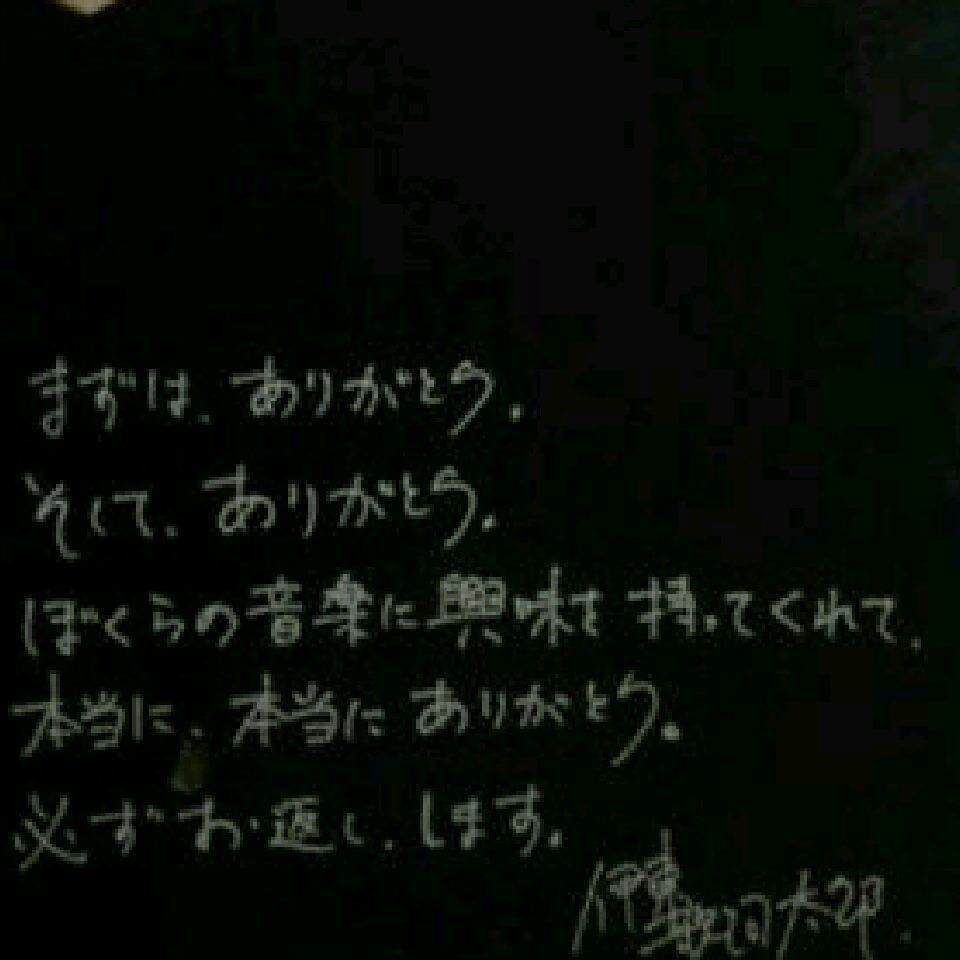 まずは、ありがとう。
そして、ありがとう。
ぼくらの音楽に興味を持ってくれて、
本当に、本当にありがとう。
必ずお返しします。
伊東歌詞太郎